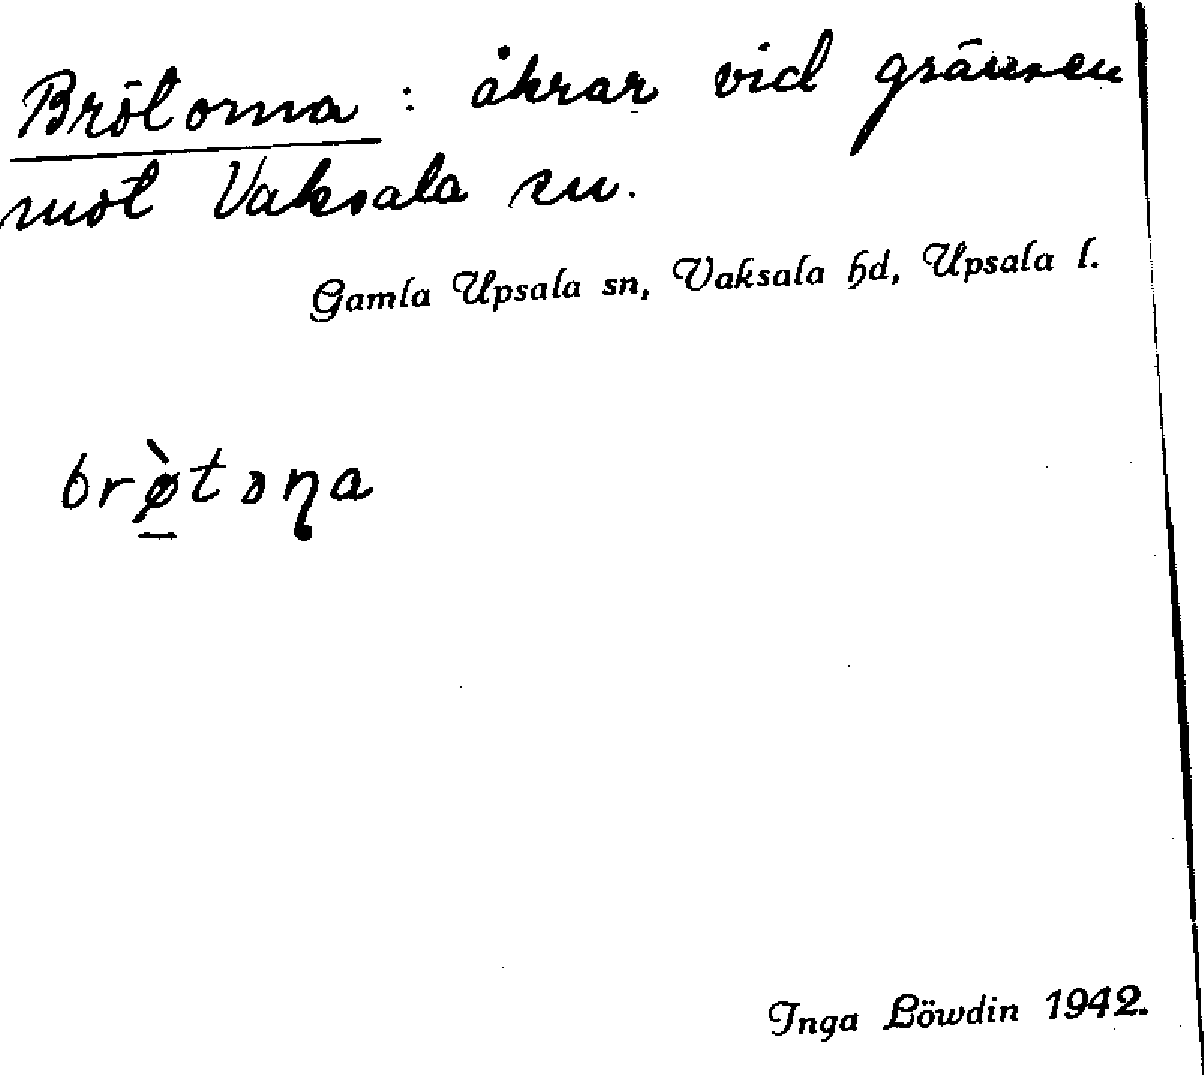 Brötorna : åkrar vid gränsen
mot Vaksala sn.
Gamla Upsala sn, Vaksala hd, Upsala l.
brø̀toṇa
Inga Löwdin 1942.